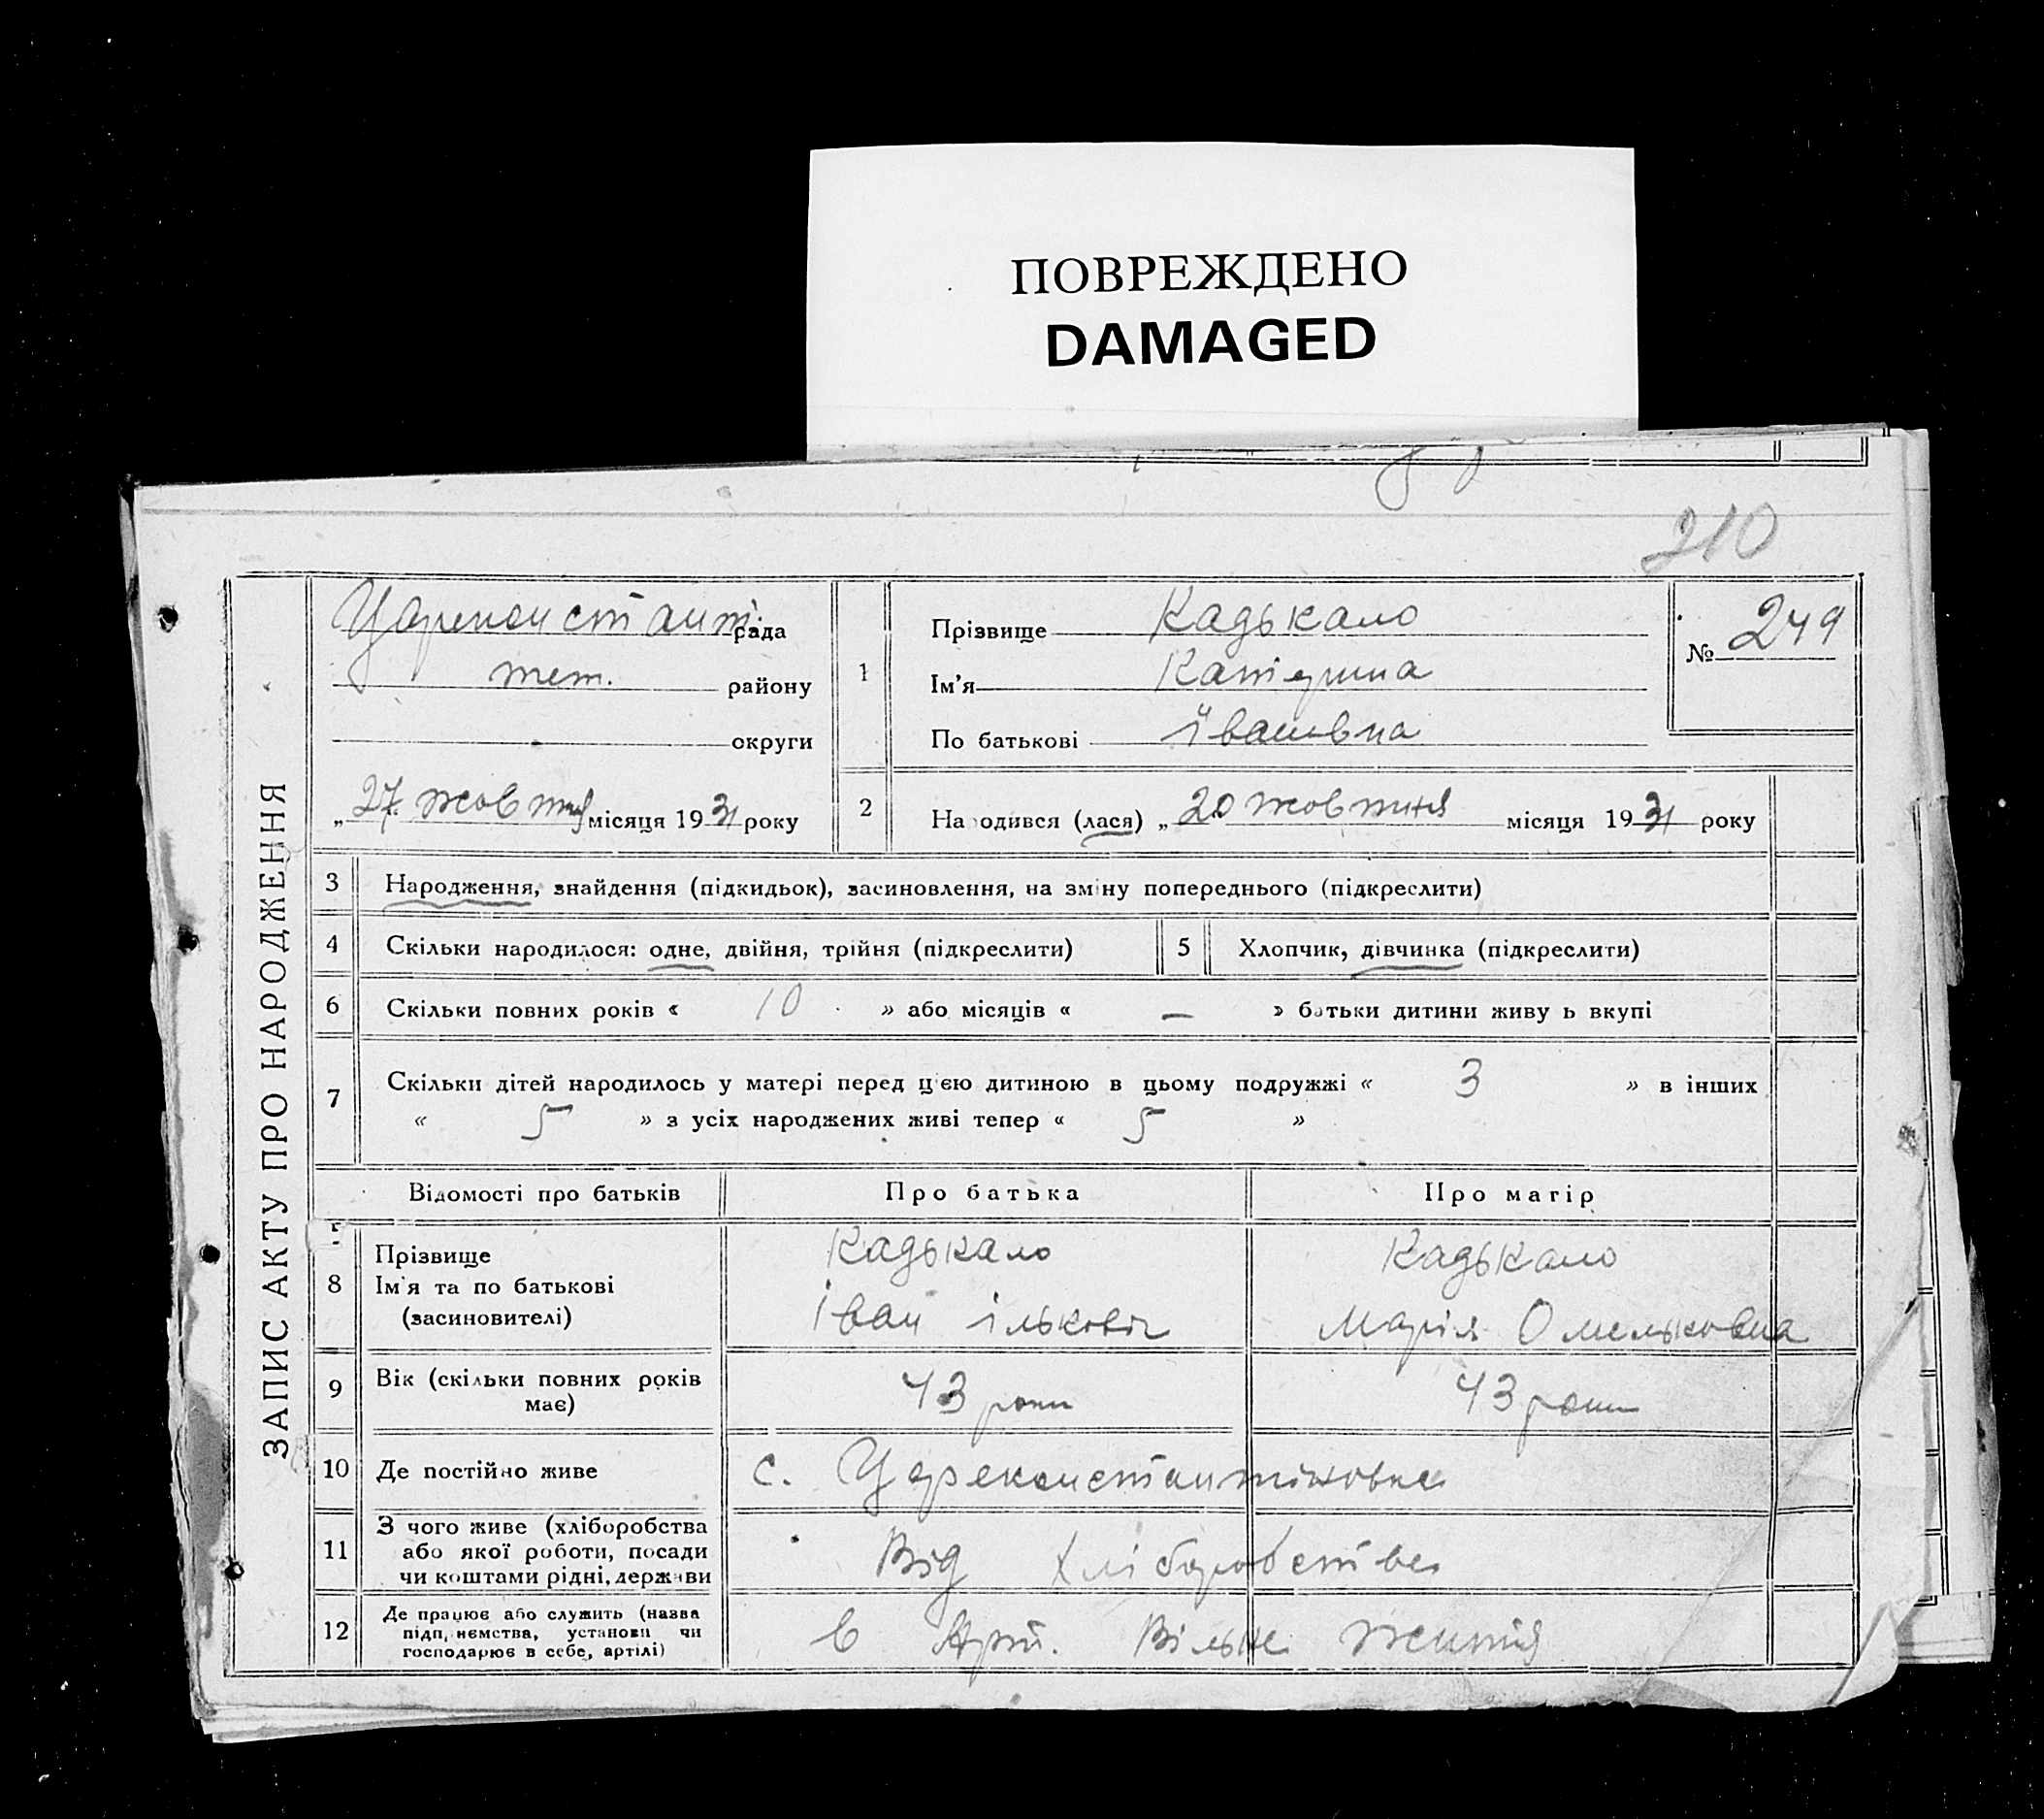 ПОВРЕЖДЕНО
DAMAGED
210
ЗАПИС АКТУ ПРО НАРОДЖЕННЯ
Цареконстант. рада
тет. району
округи
„ 27 жовтня місяця 1931 року
1
Прізвище Кадькало
Ім'я Катерина
По батькові Івановна
№ 249
2 Народився (лася) „ 20 жовтня місяця 1931 року
3 Народження, знайдення (підкидьок), засиновлення, на зміну попереднього (підкреслити)
4 Скільки народилося: одне, двійня, трійня (підкреслити) 5 Хлопчик, дівчинка (підкреслити)
6 Скільки повних років « 10 » або місяців « — » батьки дитини живуть вкупі
7 Скільки дітей народилось у матері перед цією дитиною в цьому подружжі « 3 » в інших
« 5 » з усіх народжених живі тепер « 5 »
Відомості про батьків Про батька Про матір
8 Прізвище Кадькало Кадькало
Ім'я та по батькові ІванІлькович Марія Омельковна
(засиновителі)
9 Вік (скільки повних років має) 43 роки 43 роки
10 Де постійно живе с. Цареконстантіновка
11 З чого живе (хліборобства
або якої роботи, посади
чи коштами рідні, держави Від хліборобства
12 Де працює або служить (назва
підприємства, установи чи
господарює в себе, артілі) в Арт. Вільне життя